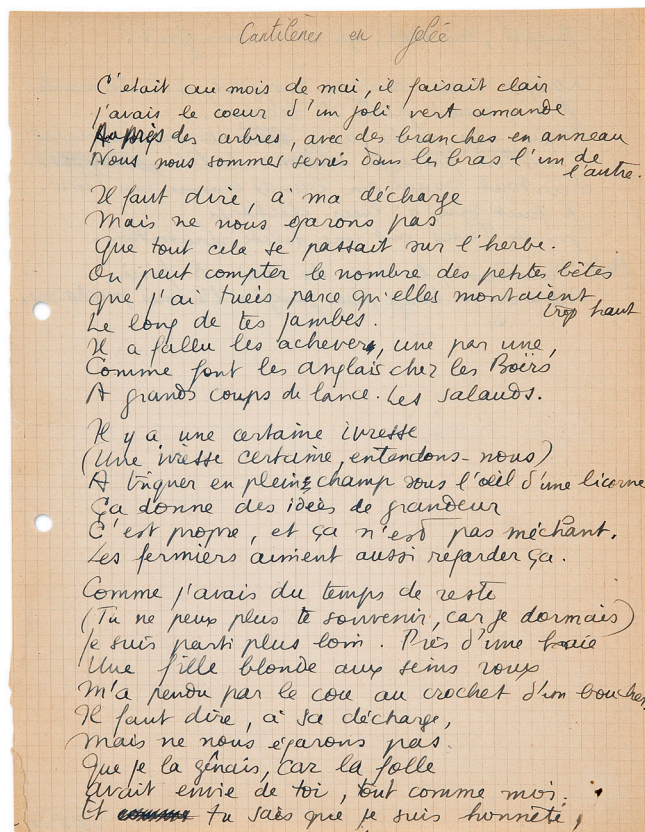 Cantilènes en gelée
C'était au mois de mai, il faisait clair
j'avais le coeur d'un joli vert amande
Auprès des arbres, avec des branches en anneau
Nous nous sommes serrés dans les bras l'un de
l'autre.
Il faut dire, à ma décharge
Mais ne nous égarons pas
Que tout cela se passait sur l'herbe.
On peut compter le nombre des petites bêtes
que j'ai tuées parce qu'elles montaient
trop haut
Le long de tes jambes.
Il a fallu les achever, une par une,
Comme font les anglais chez les Boërs
A grands coups de lance. Les salauds.
Il y a une certaine ivresse
(Une ivresse certaine, entendons-nous)
A triquer en plein champ sous l'œil d'une licorne
Ça donne des idées de grandeur
C'est propre, et ça n'est pas méchant.
Les fermiers aiment aussi regarder ça.
Comme j'avais du temps de reste
(Tu ne peux plus te souvenir, car je dormais)
je suis parti plus loin. Près d'une haie
Une fille blonde aux seins roux
M'a pendu par le cou au crochet d'un boucher.
Il faut dire, à sa décharge,
Mais ne nous égarons pas.
Que je la gênais, car la folle
avait envie de toi, tout comme moi.
Et tu sais que je suis honnête,